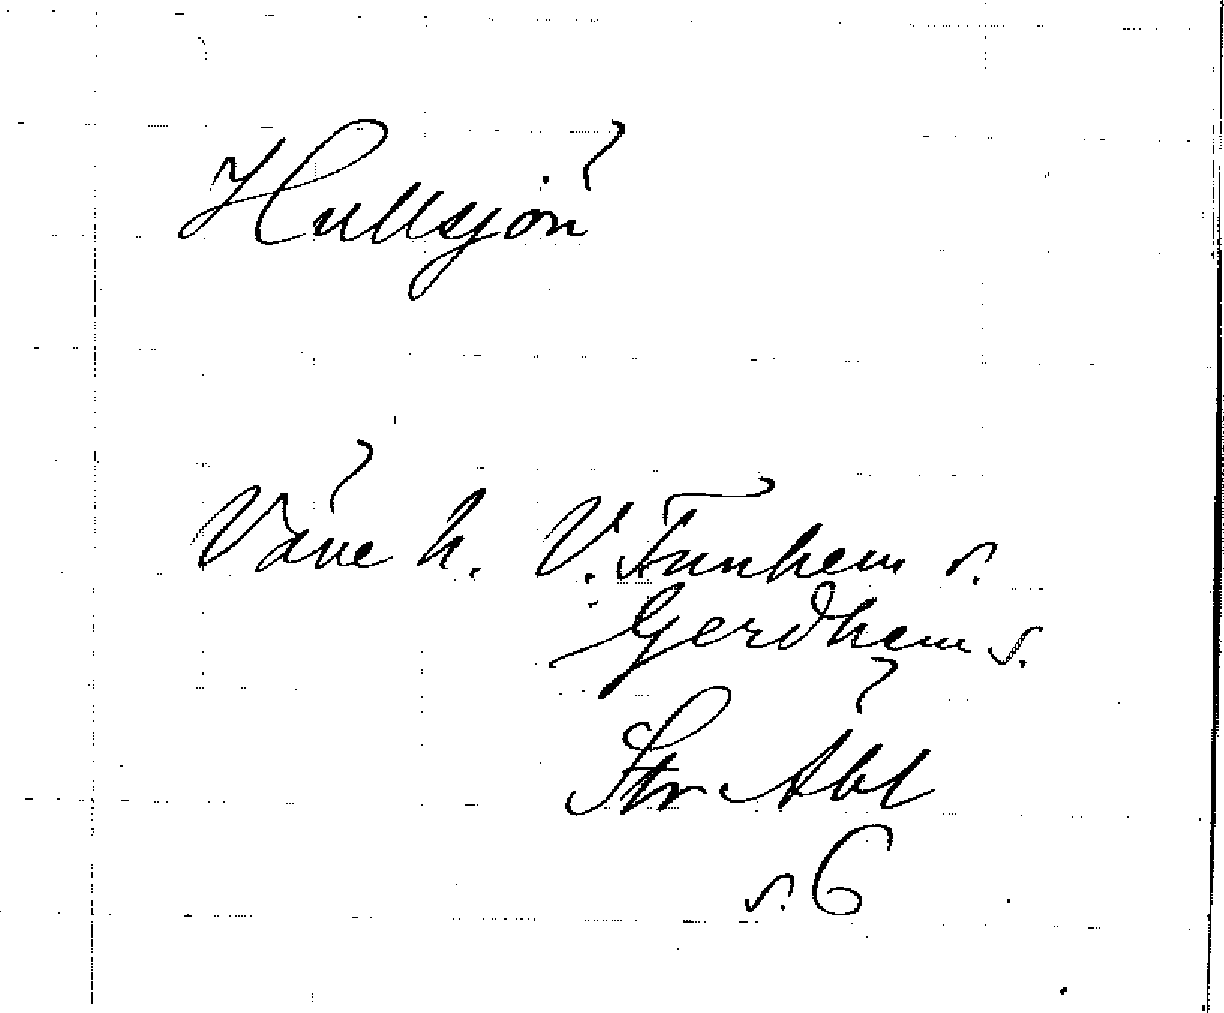 Hullsjön
Väne h. V. Tunhem s.
Gerdhem s.
Str Åbl
s. 6